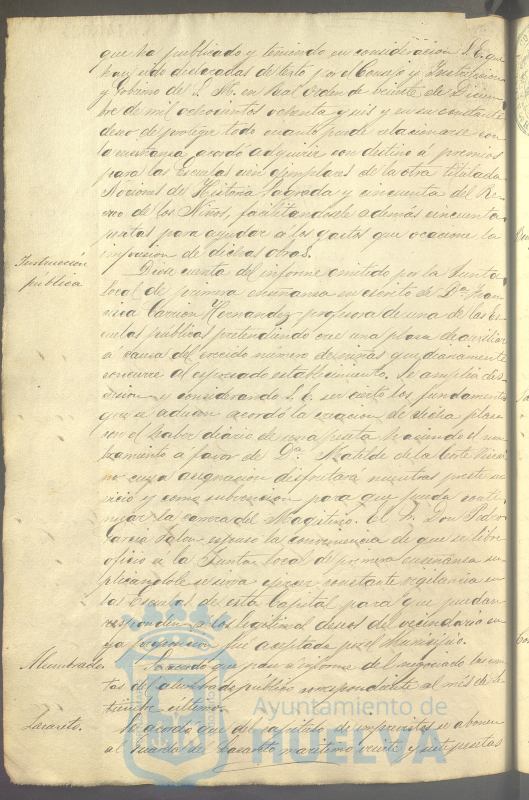 que ha publicado y teniendo en consideracion S. E. que
han sido declaradas de texto por el Consejo y Instruccion
y Gobierno de S. M. en Real orden de veinte de Diciem
bre de mil ochocientos ochenta y seis y en su constante
deseo de proteger todo cuanto puede relacionarse con
la enseñanza acordó adquirir con destino á premios
para las Escuelas cien ejemplares de la obra titulada
Nociones de Historia Sagrada y cincuenta del Re
creo de los Niños, facilitandosele además cincuenta
pesetas para ayudar á los gastos que ocasione la
impresion de dichas obras.
Instruccion
pública
Diose cuenta del informe emitido por la Junta
local de primera enseñanza en escrito de Dª Fran
cisca Carrion Hernandez profesora de una de las Es
cuelas publicas pretendiendo cree una plaza de auxiliar
á causa del crecido número de niñas que diariamente
concurre al espresado establecimiento. Se amplia dis
cusion y considerando S. E. ser cierto los fundamentos
que se aducen acordó la creacion de dicha plaza
con el haber diario de una peseta haciendo el nom
bramiento á favor de Dª Matilde de la Corte
cuya asignacion disfrutará mientras preste ser
vicio y como subvencion para que pueda conti
nuar la carrera del Magisterio. El Sr. Don Pedro
Garcia Jalon espuso la conveniencia de que se libre
oficio á la Junta local de primera enseñanza su
plicandole se sirva ejercer constante vigilancia en
las Escuelas de esta Capital para que puedan
responder á los legitimos deseos del vecindario cu
ya proposicion fué aceptada por el Municipio.
Alumbrado
Acordó que pase á informe del negociado las cuen
tas del alumbrado público correspondiente al mes de Se
tiembre ultimo.
Lazareto.
Se acordó que del capitulo de imprevistos se abonen
al guarda del Lazareto maritimo veinte y siete pesetas
Ayuntamiento de
HUELVA